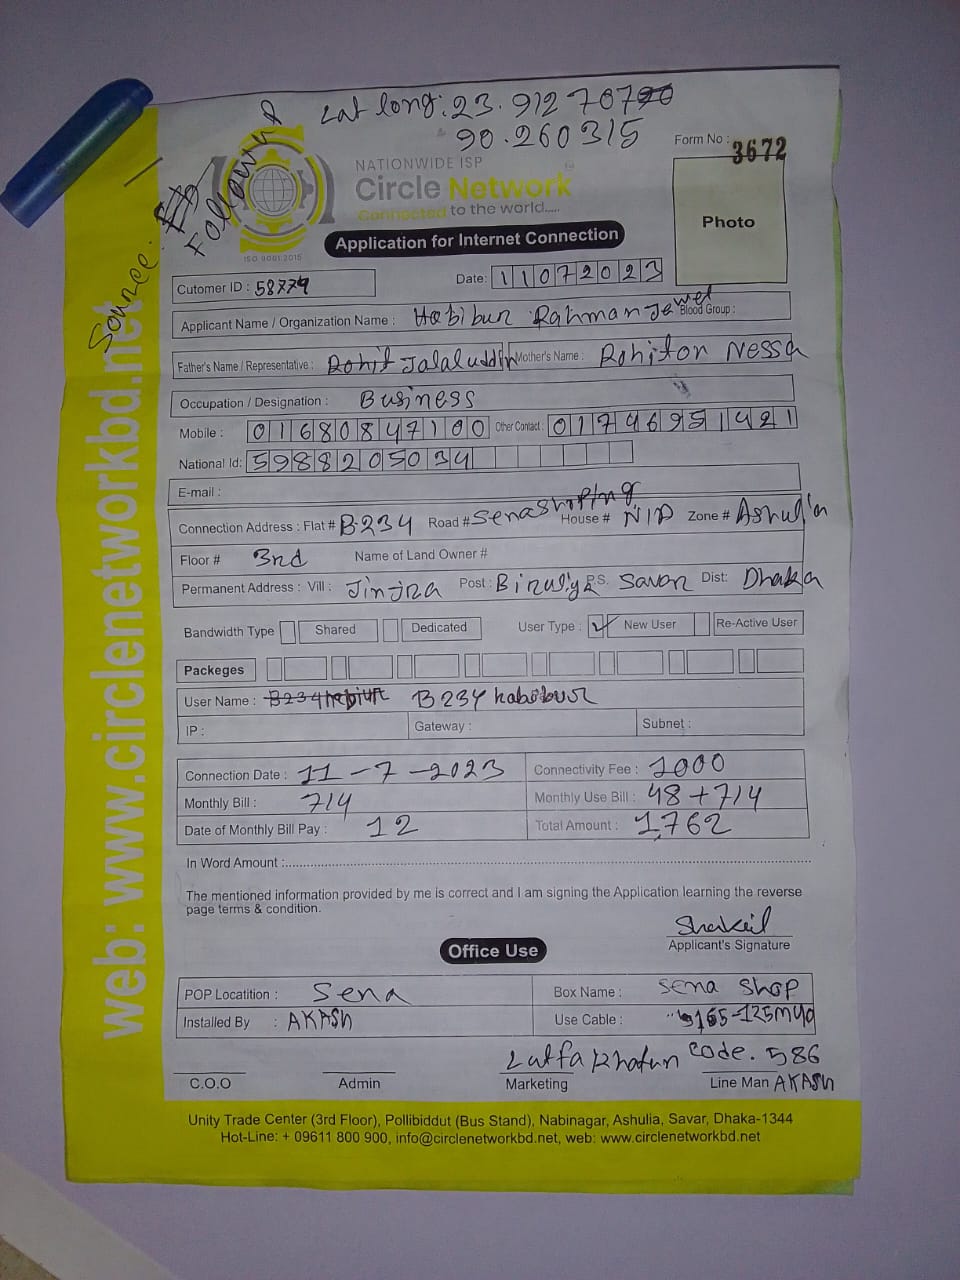 Lat long: 23.9127070
90.260315
Source. Fb Followup
Form No : 3672
NATIONWIDE ISP
Circle Network
Connected to the world.....
ISO 9001:2015
Photo
Application for Internet Connection
Cutomer ID : 58779
Date: 11072023
Applicant Name / Organization Name : Habibur Rahman Jewel Blood Group :
Father's Name / Representative : Rohit Jalaluddin Mother's Name : Rohiton Nessa
Occupation / Designation : Business
Mobile : 01680847100 Other Contact : 01746951421
National Id: 5988205034
E-mail :
Connection Address : Flat # B-234 Road # Senashoping House # N/A Zone # Ashulia
Floor # 3rd Name of Land Owner #
Permanent Address : Vill : Jinjra Post : Birulya P.S. Savar Dist: Dhaka
Bandwidth Type Shared Dedicated User Type : ✓ New User Re-Active User
Packeges
User Name : B234habibur
IP : Gateway : Subnet :
Connection Date : 11-7-2023 Connectivity Fee : 1000
Monthly Bill : 714 Monthly Use Bill : 48+714
Date of Monthly Bill Pay : 12 Total Amount : 1,762
In Word Amount :
The mentioned information provided by me is correct and I am signing the Application learning the reverse
page terms & condition.
Shakil
Applicant's Signature
Office Use
POP Locatition : Sena Box Name : Sena Shop
Installed By : AKASH Use Cable :
Lutfa Khatun Code. 586
C.O.O Admin Marketing Line Man AKASH
Unity Trade Center (3rd Floor), Pollibiddut (Bus Stand), Nabinagar, Ashulia, Savar, Dhaka-1344
Hot-Line: + 09611 800 900, info@circlenetworkbd.net, web: www.circlenetworkbd.net
web: www.circlenetworkbd.net